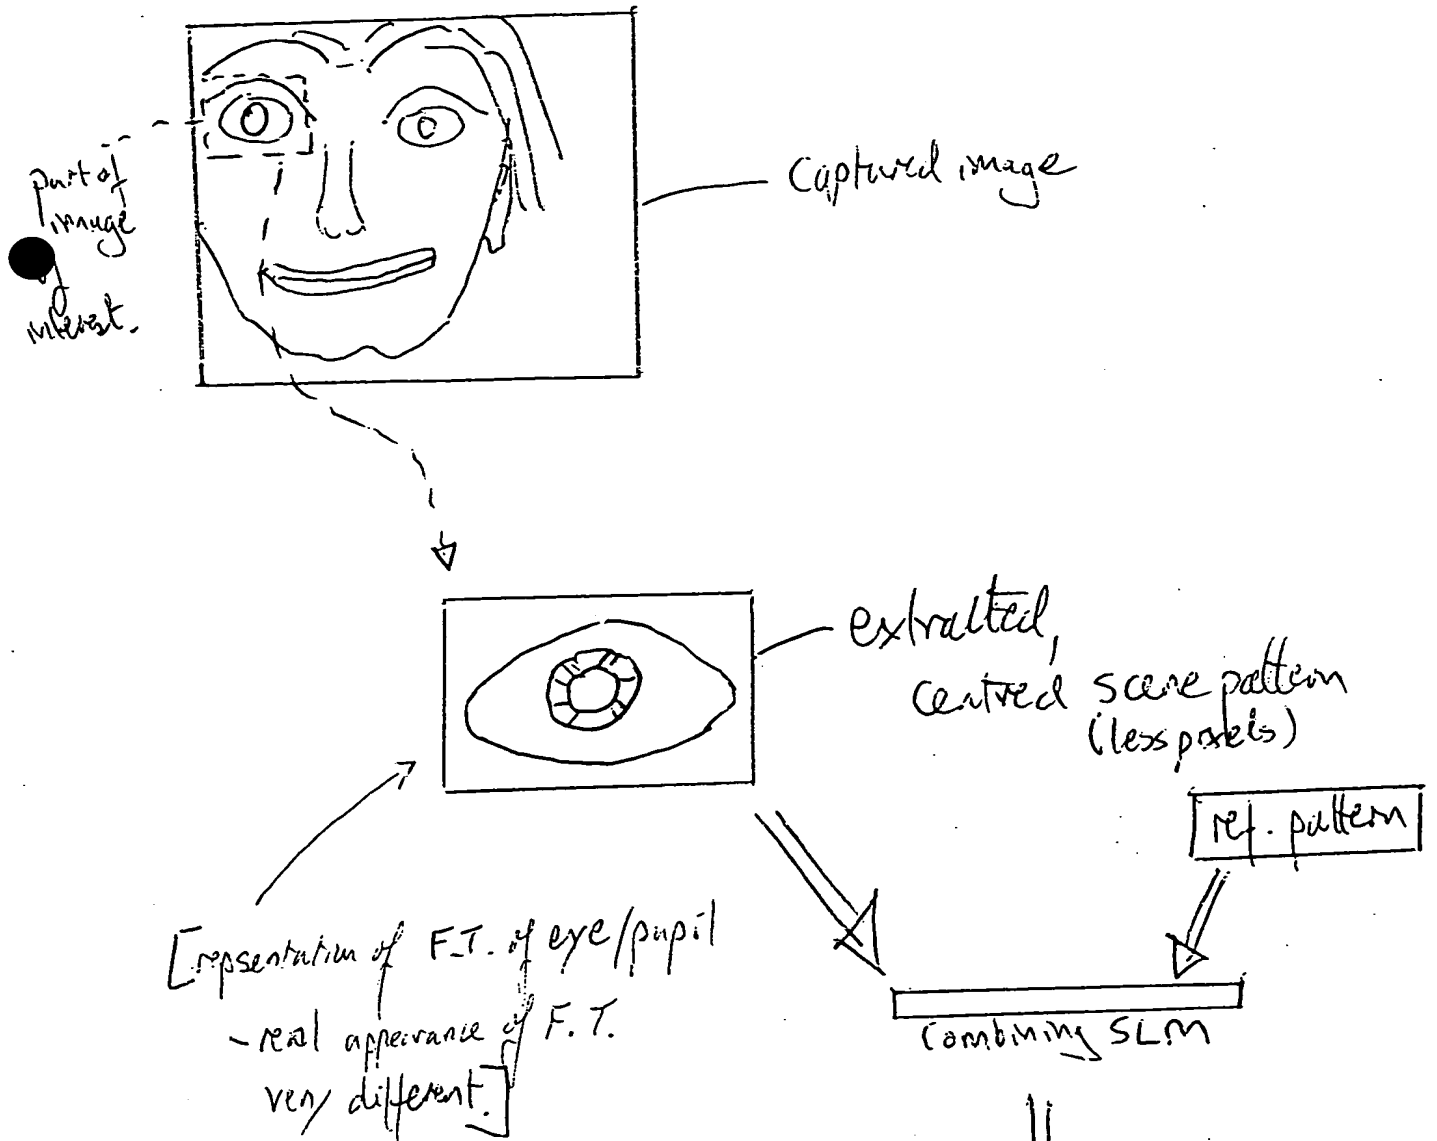 captured image
part of
image
of
interest.
extracted,
centred scene pattern
(less pixels)
ref. pattern
[repsentation of F.T. of eye/pupil
- real appearance of F.T.
very different.]
Combining SLM